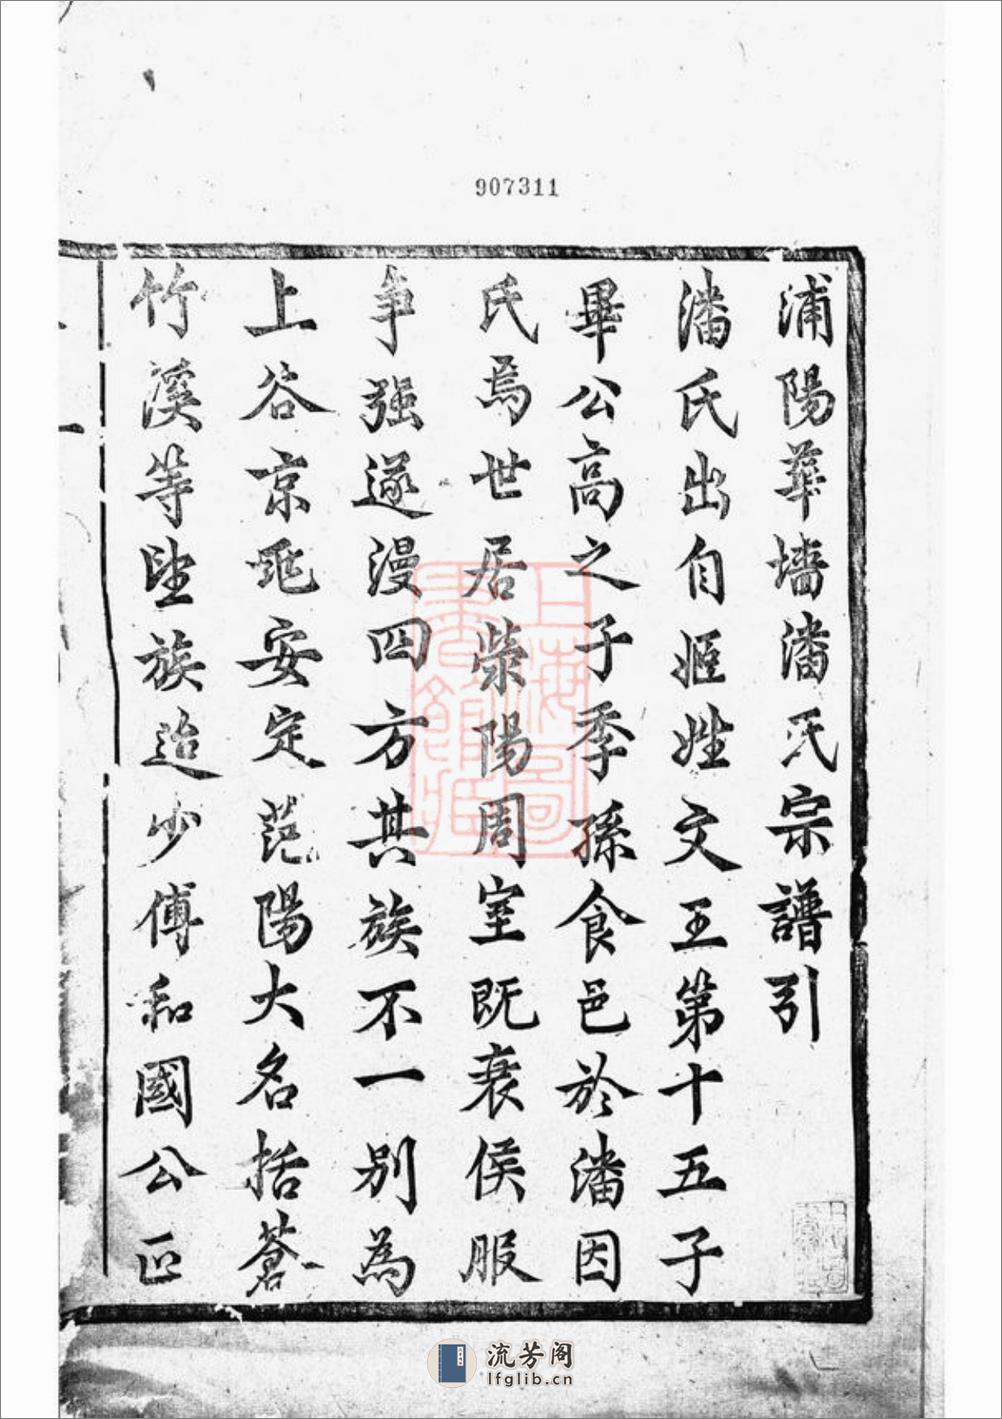 907311
浦陽華墻潘氏宗譜引
潘氏出自姬姓文王第十五子
畢公高之子季孫食邑於潘因
氏焉世居滎陽周室既衰侯服
争强遂漫四方其族不一别為
上谷京兆安定范陽大名括蒼
竹溪等望族迨少傅和國公正
上海圖書館藏
流芳阁
lfglib.cn